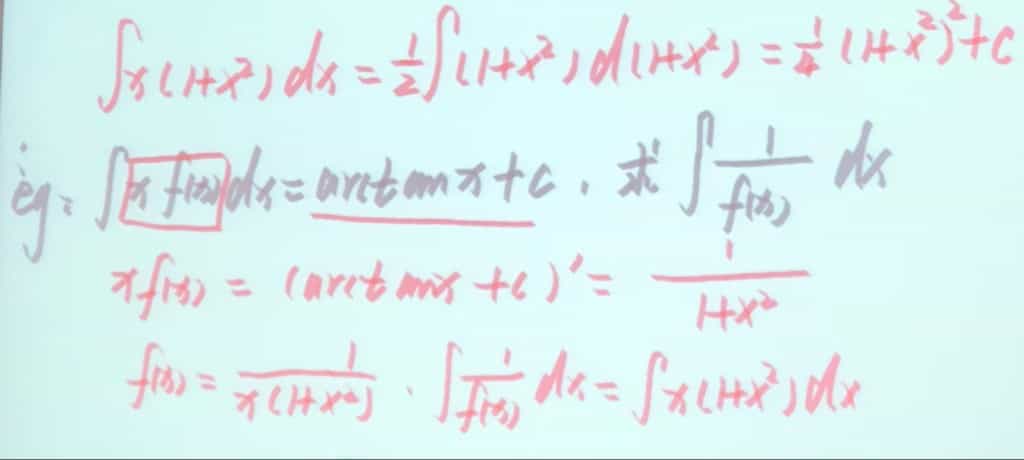 ∫x(1+x²)dx = 1/2 ∫(1+x²)d(1+x²) = 1/4 (1+x²)²+C
eg: ∫x f(x)dx = arctanx+c. 求 ∫ 1/f(x) dx
xf(x) = (arctanx+c)' = 1/(1+x²)
f(x) = 1/(x(1+x²)). ∫ 1/f(x) dx = ∫x(1+x²)dx